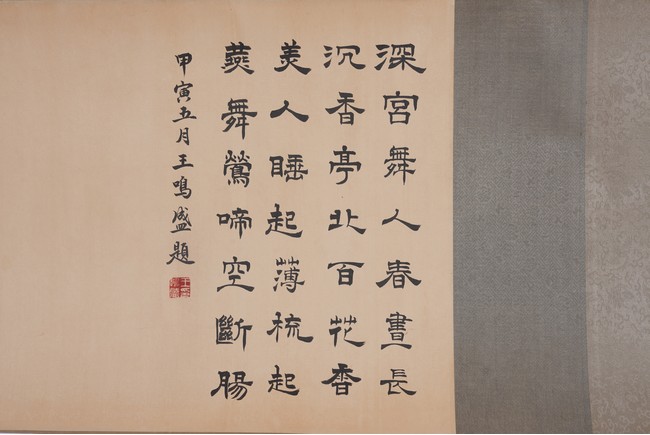 深宮舞人春晝長
沉香亭北百花香
美人睡起薄梳起
燕舞鶯啼空斷腸
甲寅五月王鳴盛題